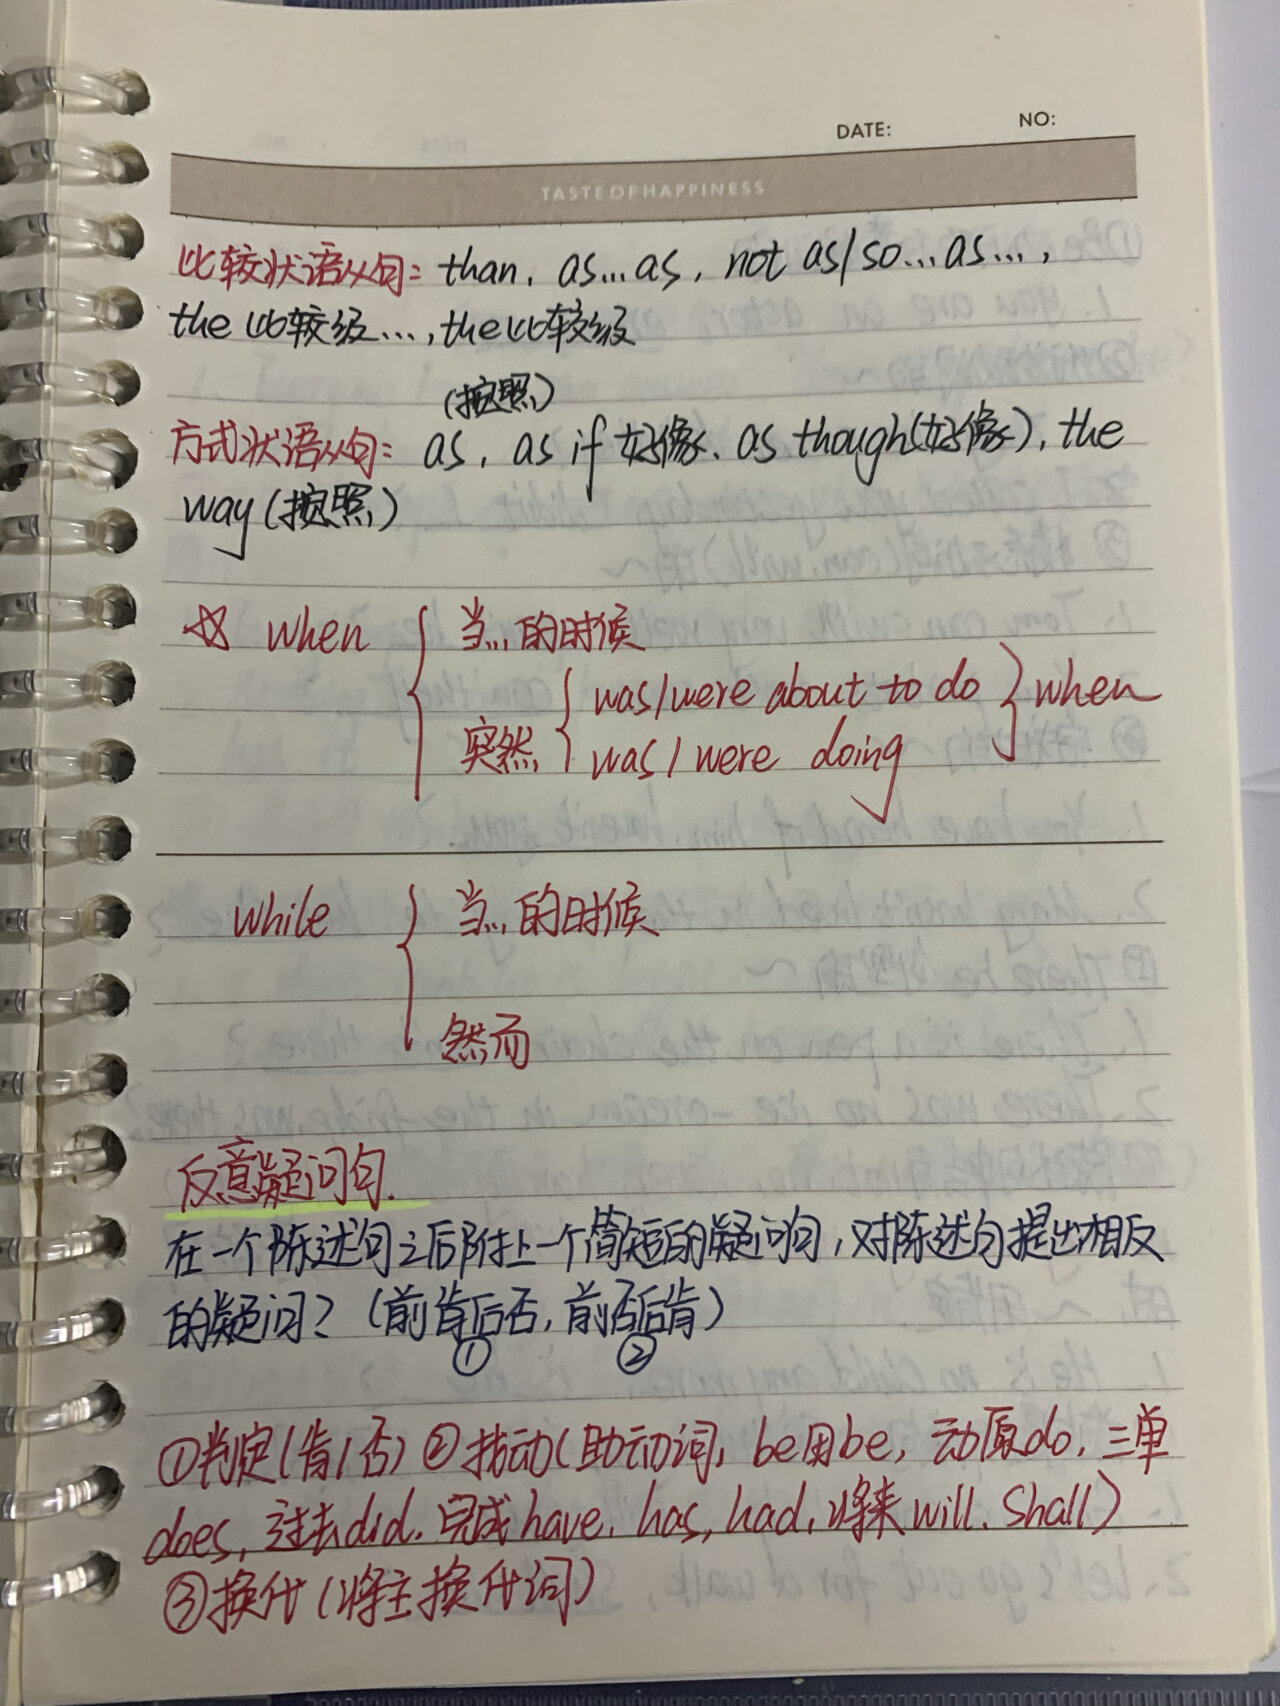 DATE: NO:
TASTE OF HAPPINESS
比较状语从句: than, as...as, not as/so...as...,
the 比较级..., the 比较级
(按照)
方式状语从句: as, as if 好像, as though(好像), the
way (按照)
☆ when { 当...的时候
突然 { was/were about to do } when
was/were doing
while { 当...的时候
然而
反意疑问句.
在一个陈述句之后附上一个简短的疑问句,对陈述句提出相反
的疑问?(前肯后否,前否后肯)
① ②
①判定(肯/否) ②找动(助动词, be用be, 动原do, 三单
does, 过去did. 完成have, has, had, 将来will. Shall)
③换代(将主换代词)